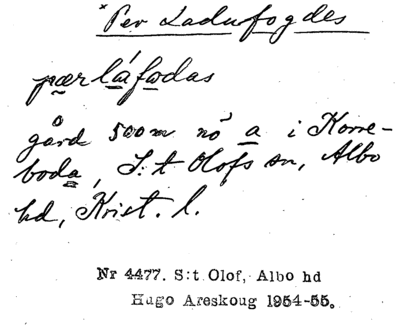 *Per Ladufogdes
pærláfodas
gård 500m nö a i Korre-
boda, S:t Olofs sn, Albo
hd, Krist. l.
Nr 4477. S:t Olof, Albo hd
Hugo Areskoug 1954-55.